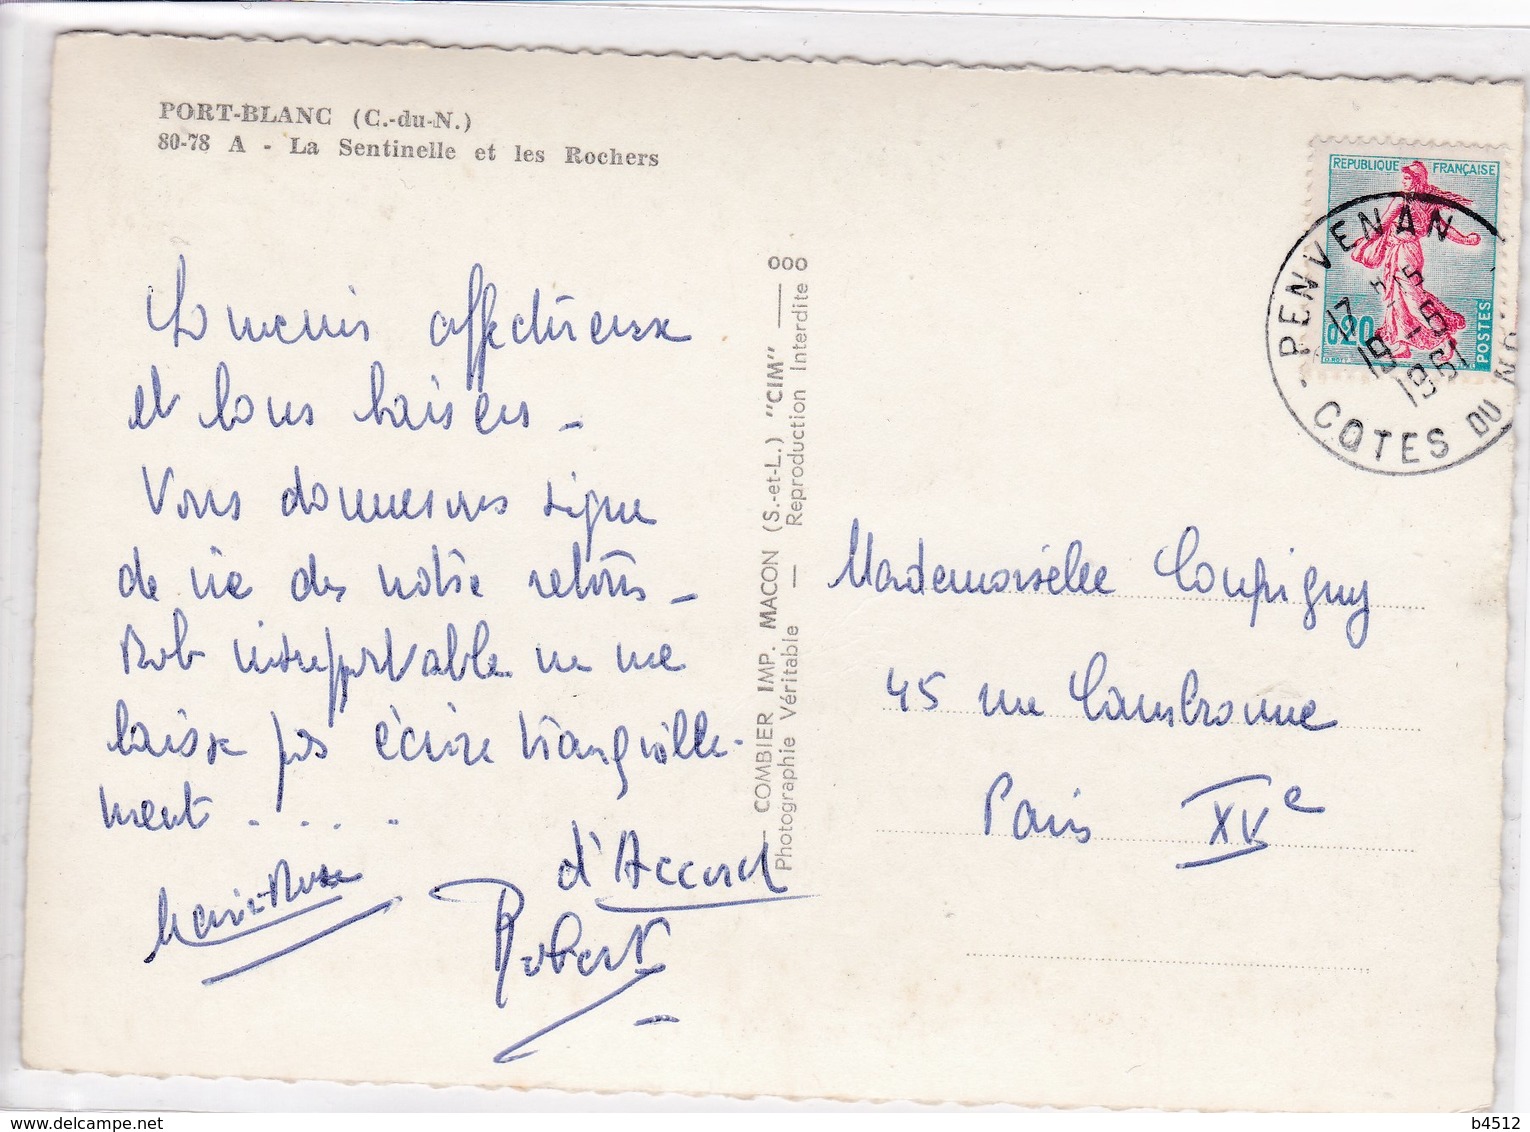 PORT-BLANC (C.-du-N.)
80-78 A - La Sentinelle et les Rochers
affectueux
et bons baisers -
Vous donnerons signe
de vie dès notre retour -
Rob insupportable ne me
laisse pas écrire tranquille-
ment . . . .
Marie-Rose
d'Accord
Robert
COMBIER IMP. MACON (S.-et-L.) "CIM" — ooo
Photographie Véritable — Reproduction Interdite o
REPUBLIQUE FRANÇAISE
0,20
POSTES
PENVENAN
17 H
19 - 5
1961
COTES DU N
Mademoiselle Coupigny
45 rue Cambronne
Paris XVe
www.delcampe.net
b4512